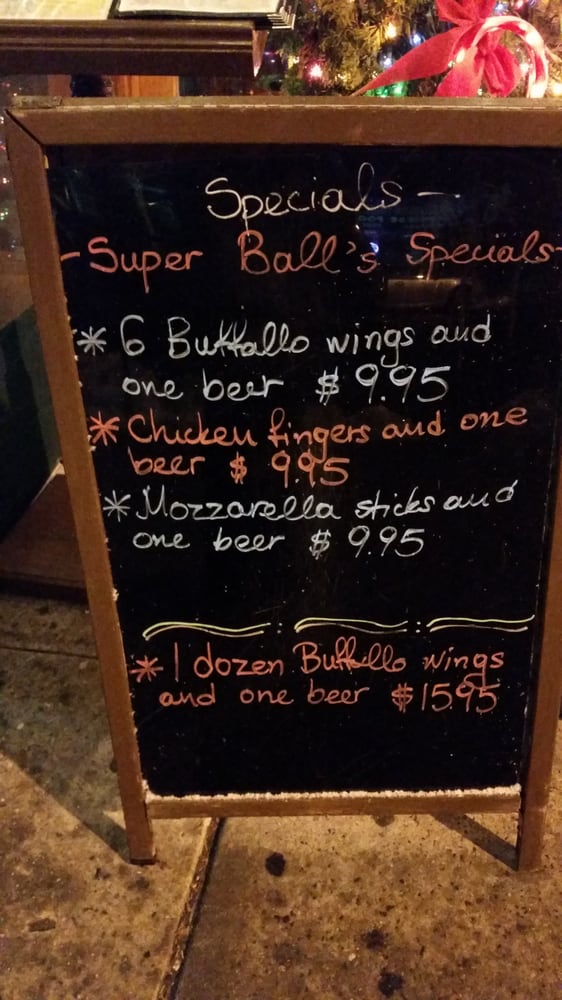 Specials-
-Super Ball's Specials-
* 6 Buffallo wings and
one beer $ 9.95
* Chicken fingers and one
beer $ 9.95
* Mozzarella sticks and
one beer $ 9.95
* 1 dozen Buffallo wings
and one beer $15.95